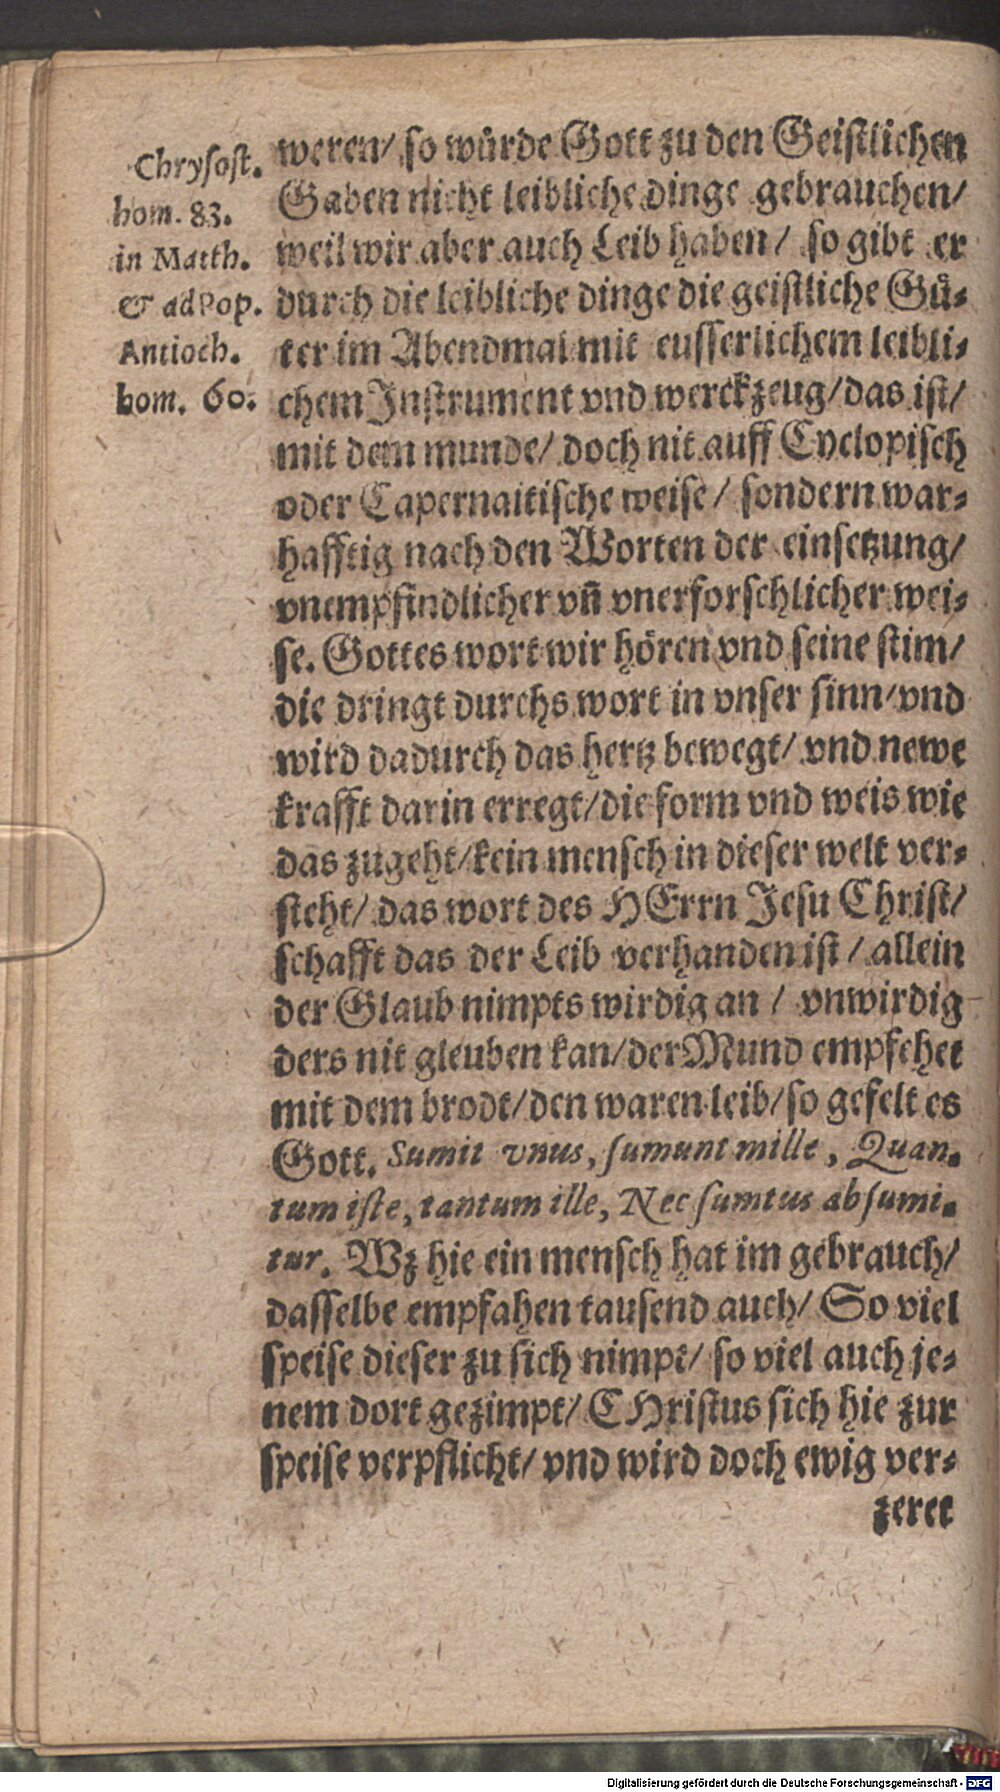 Chrysost.
hom. 83.
in Matth.
& ad Pop.
Antioch.
hom. 60.
weren/ so würde Gott zu den Geistlichen
Gaben nicht leibliche dinge gebrauchen/
weil wir aber auch Leib haben/ so gibt er
durch die leibliche dinge die geistliche Gü-
ter im Abendmal mit eusserlichem leibli-
chem Instrument vnd werckzeug/ das ist/
mit dem munde/ doch nit auff Cyclopisch
oder Capernaitische weise/ sondern war-
hafftig nach den Worten der einsetzung/
vnempfindlicher vn̄ vnerforschlicher wei-
se. Gottes wort wir hören vnd seine stim/
die dringt durchs wort in vnser sinn/ vnd
wird dadurch das hertz bewegt/ vnd newe
krafft darin erregt/ die form vnd weis wie
das zugeht/ kein mensch in dieser welt ver-
steht/ das wort des HErrn Jesu Christ/
schafft das der Leib verhanden ist/ allein
der Glaub nimpts wirdig an/ vnwirdig
ders nit gleuben kan/ der Mund empfehet
mit dem brodt/ den waren leib/ so gefelt es
Gott. Sumit vnus, sumunt mille, Quan-
tum iste, tantum ille, Nec sumtus absumi-
tur. Wz hie ein mensch hat im gebrauch/
dasselbe empfahen tausend auch/ So viel
speise dieser zu sich nimpt/ so viel auch je-
nem dort gezimpt/ CHristus sich hie zur
speise verpflicht/ vnd wird doch ewig ver-
zeret
Digitalisierung gefördert durch die Deutsche Forschungsgemeinschaft - DFG